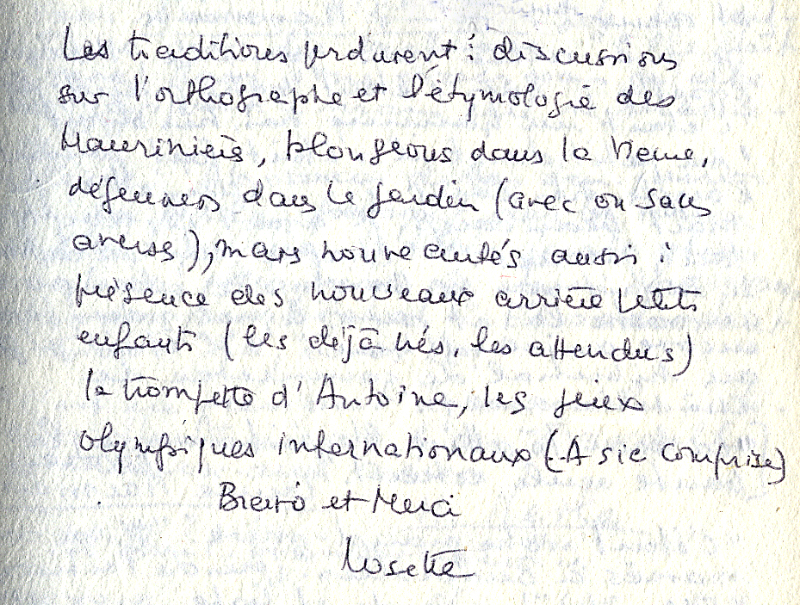 Les traditions perdurent : discussions
sur l'orthographe et l'étymologie des
Mauriniers, plongeons dans la Veune,
déjeuners dans le jardin (avec ou sans
averse), mais nouveautés aussi :
présence des nouveaux arrière petits
enfants (les déjà nés, les attendus)
la trompette d'Antoine, les jeux
olympiques internationaux (Asie comprise)
Bravo et Merci
Rosette